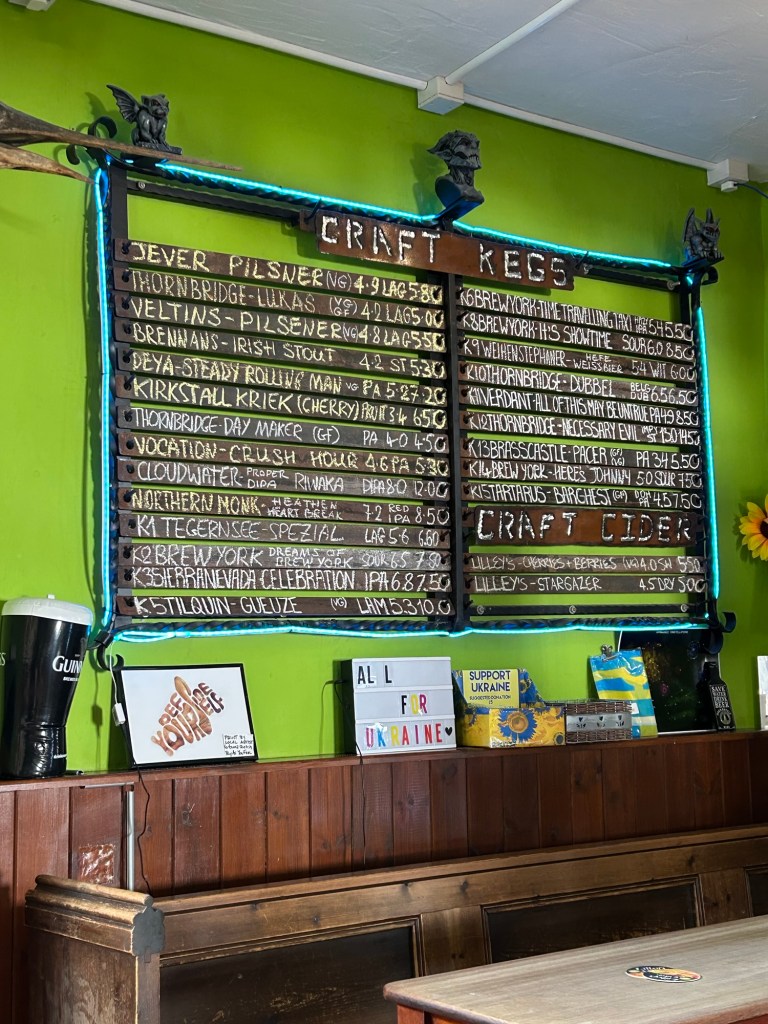 CRAFT KEGS
JEVER PILSNER (VG) 4.9 LAG 5.80
THORNBRIDGE-LUKAS (VG GF) 4.2 LAG 5.00
VELTINS-PILSENER (VG) 4.8 LAG 5.50
BRENNANS-IRISH STOUT 4.2 ST 5.30
DEYA-STEADY ROLLING MAN VG PA 5.2 7.20
KIRKSTALL KRIEK (CHERRY) FRUIT 3.4 6.50
THORNBRIDGE-DAY MAKER (GF) PA 4.0 4.50
VOCATION-CRUSH HOUR 4.6 PA 5.30
CLOUDWATER PROPER DIPA RIWAKA DIPA 8.0 12.00
NORTHERN MONK-HEATHEN HEART BREAK 7.2 RED IPA 8.50
K1 TEGERNSEE-SPEZIAL LAG 5.6 6.60
K2 BREW YORK DREAMS OF BREW YORK SOUR 6.5 7.80
K3 SIERRA NEVADA-CELEBRATION IPA 6.8 7.50
K5 TILQUIN-GUEUZE (VG) LAM 5.3 10.0
K6 BREWYORK-TIME TRAVELLING TAXI 5.4 5.50
K8 BREWYORK-IT'S SHOWTIME SOUR 6.0 8.50
K9 WEIHENSTEPHANER-HEFE WEISSBIER 5.4 WIT 6.00
K10 THORNBRIDGE-DUBBEL BELG DUB 6.5 6.50
K11 VERDANT-ALL OF THIS MAY BE UNTRUE PA 4.9 8.50
K12 THORNBRIDGE-NECESSARY EVIL IMP ST 13.0 14.50
K13 BRASSCASTLE-PACER PA 3.4 5.50
K14 BREW YORK-HERE'S JOHNNY 5.0 SOUR 7.50
K15 TARTARUS-BARGHEST (GF) 4.5 7.50
CRAFT CIDER
LILLEY'S-CHERRIES+BERRIES (VG) 4.0 SW 5.50
LILLEY'S-STARGAZER 4.5 DRY 5.00
GUINN
BEE
YOURSELF
ALL
FOR
UKRAINE♥
SUPPORT
UKRAINE
SUGGESTED DONATION
£5
SAVE
WATER
DRINK
BEER